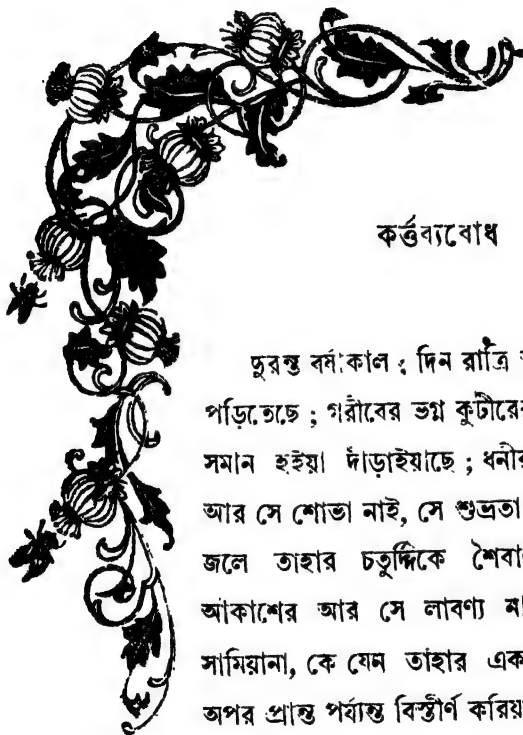 কর্ত্তব্যবোধ
দুরন্ত বর্ষাকাল; দিন রাত্রি
পড়িতেছে; গরীবের ভগ্ন কুটীরে
সমান হইয়া দাঁড়াইয়াছে; ধনীর
আর সে শোভা নাই, সে শুভ্রতা
জলে তাহার চতুর্দ্দিকে
আকাশের আর সে লাবণ্য
সামিয়ানা, কে যেন তাহার এক
অপর প্রান্ত পর্য্যন্ত বিস্তীর্ণ